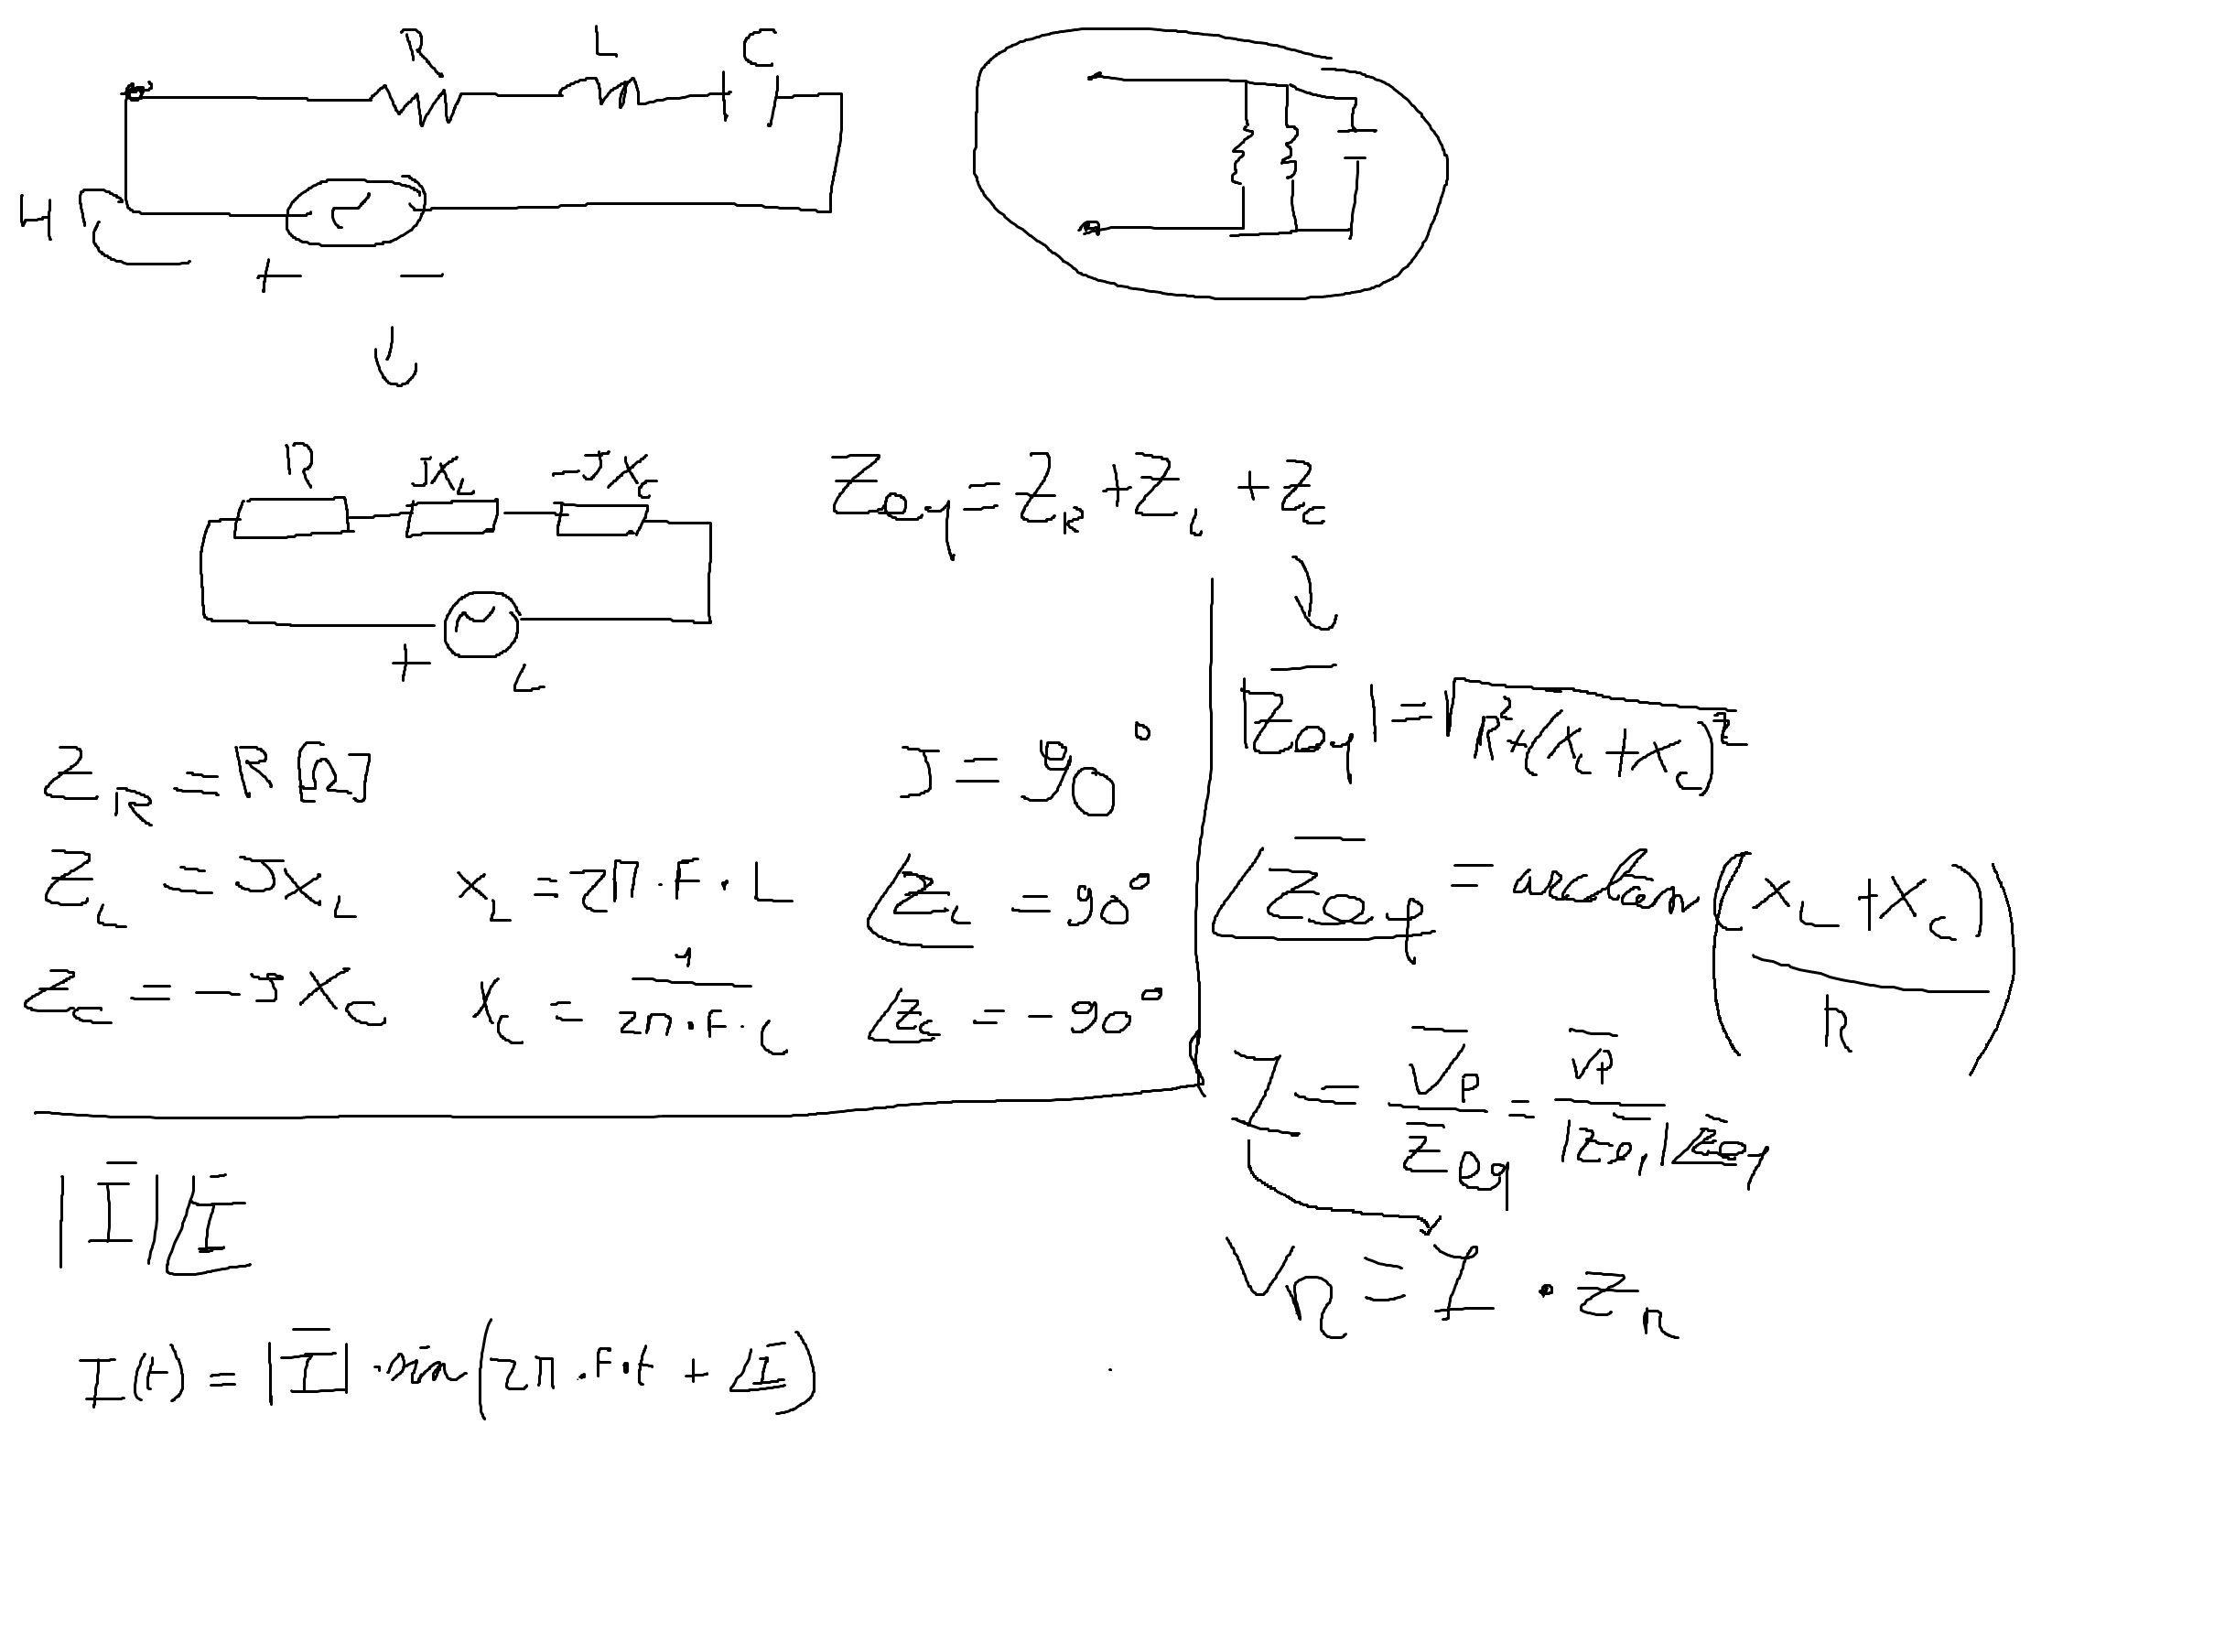 R L C
H
+ −
R JX_L −JX_C
+ L
Z_eq = Z_R + Z_L + Z_C
|Z̅_eq| = √(R² + (X_L + X_C)²)
Z_R = R [Ω] J = 90°
Z_L = JX_L X_L = 2π · F · L ∠Z_L = 90°
Z_C = −JX_C X_C = 1/(2π · F · C) ∠Z_C = −90°
∠Z̅_eq = arctan((X_L + X_C)/R)
I = V̅_P/Z̅_eq = V̅_P/(|Z̅_eq| ∠Z̅_eq)
V_R = I · Z_R
|I̅| ∠I̅
I(t) = |I̅| · sin(2π · F · t + ∠I̅)